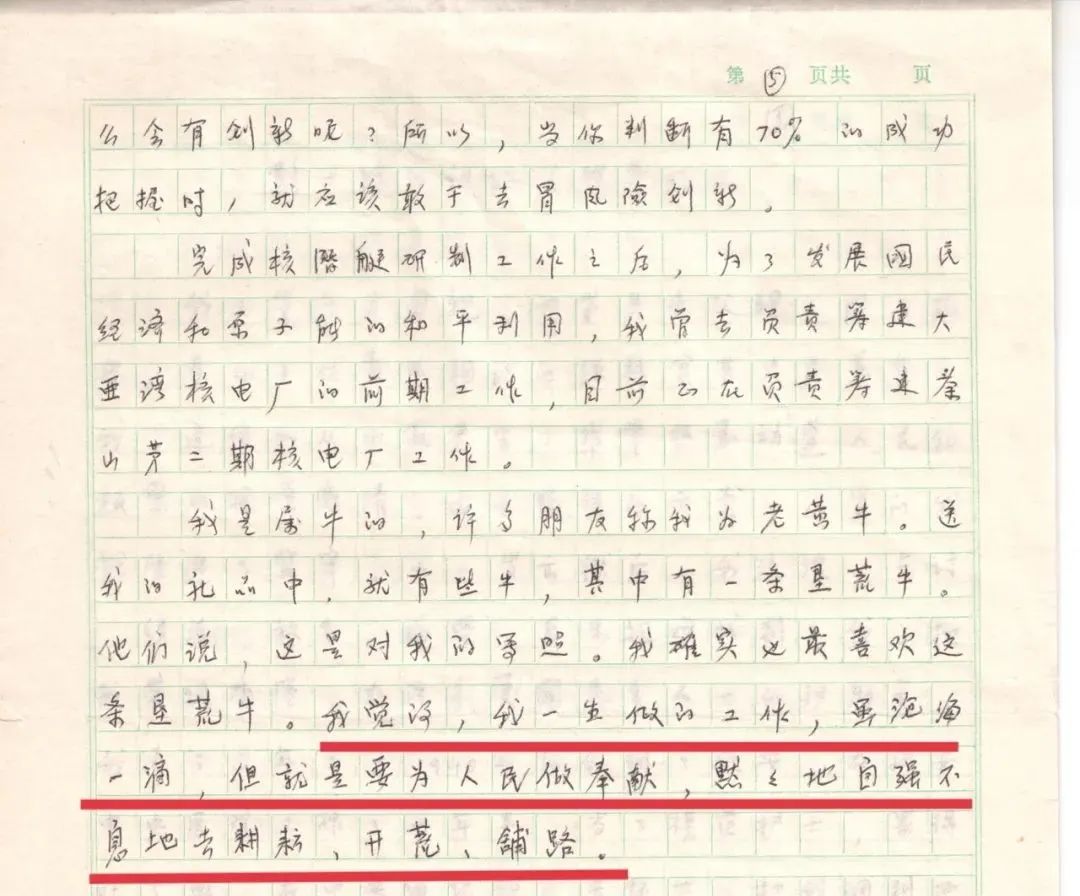 第 ⑤ 页共 页
么会有创新呢？所以，当你判断有70%的成功
把握时，就应该敢于去冒风險创新。
完成核潛艇研制工作之后，为了发展國民
经济和原子能的和平利用，我曾去负责筹建大
亚湾核电厂的前期工作，目前正在负责筹建秦
山第二期核电厂工作。
我是属牛的，许多朋友称我为老黄牛。送
我的礼品中，就有些牛，其中有一条垦荒牛。
他们说，这是对我的写照。我确实也最喜欢这
条垦荒牛。我觉得，我一生做的工作，虽沧海
一滴，但就是要为人民做奉献，默々地自强不
息地去耕耘、开荒、舖路。